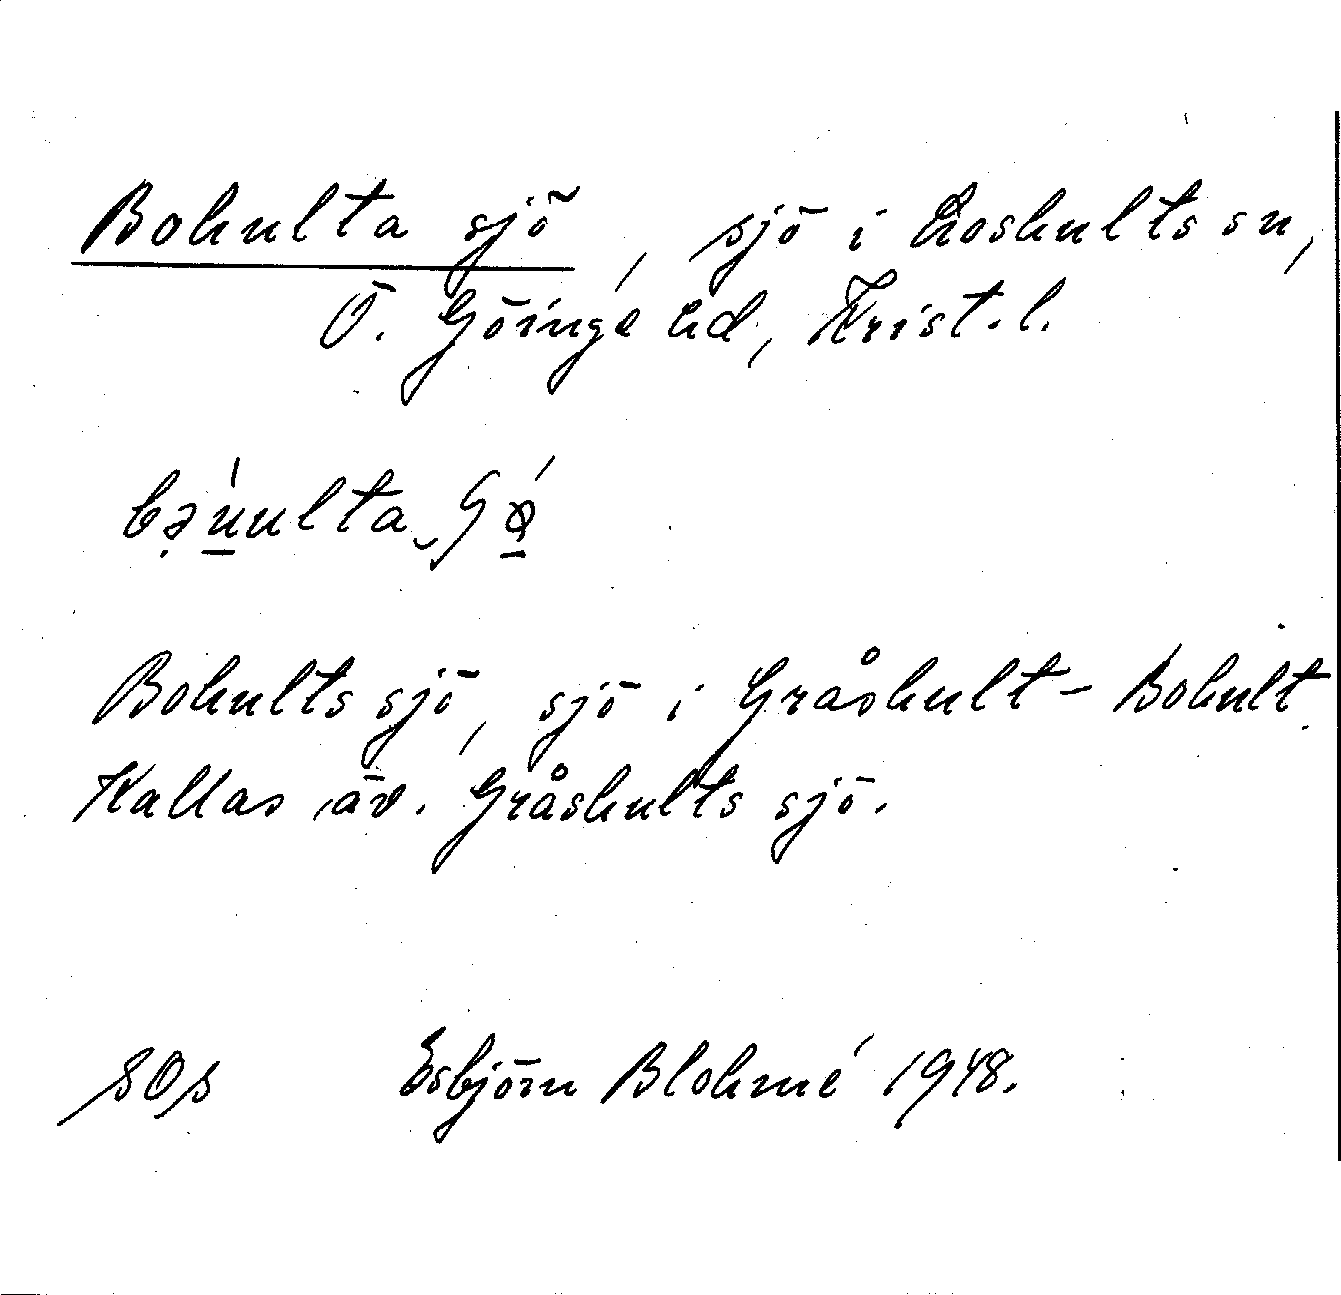 Bohulta sjö, sjö i Loshults sn,
Ö. Göinge hd, Krist. l.
Bohults sjö, sjö i Gråshult - Bohult.
Kallas äv. Gråshults sjö.
SOs Esbjörn Blohmé 1948.